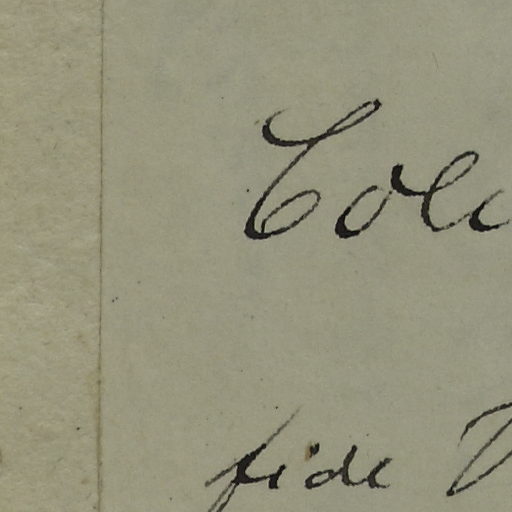 Cole
fide